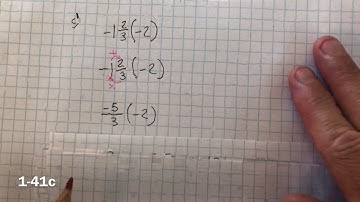 -1 2/3 (-2)
-1 2/3 (-2)
-5/3 (-2)
1-41c